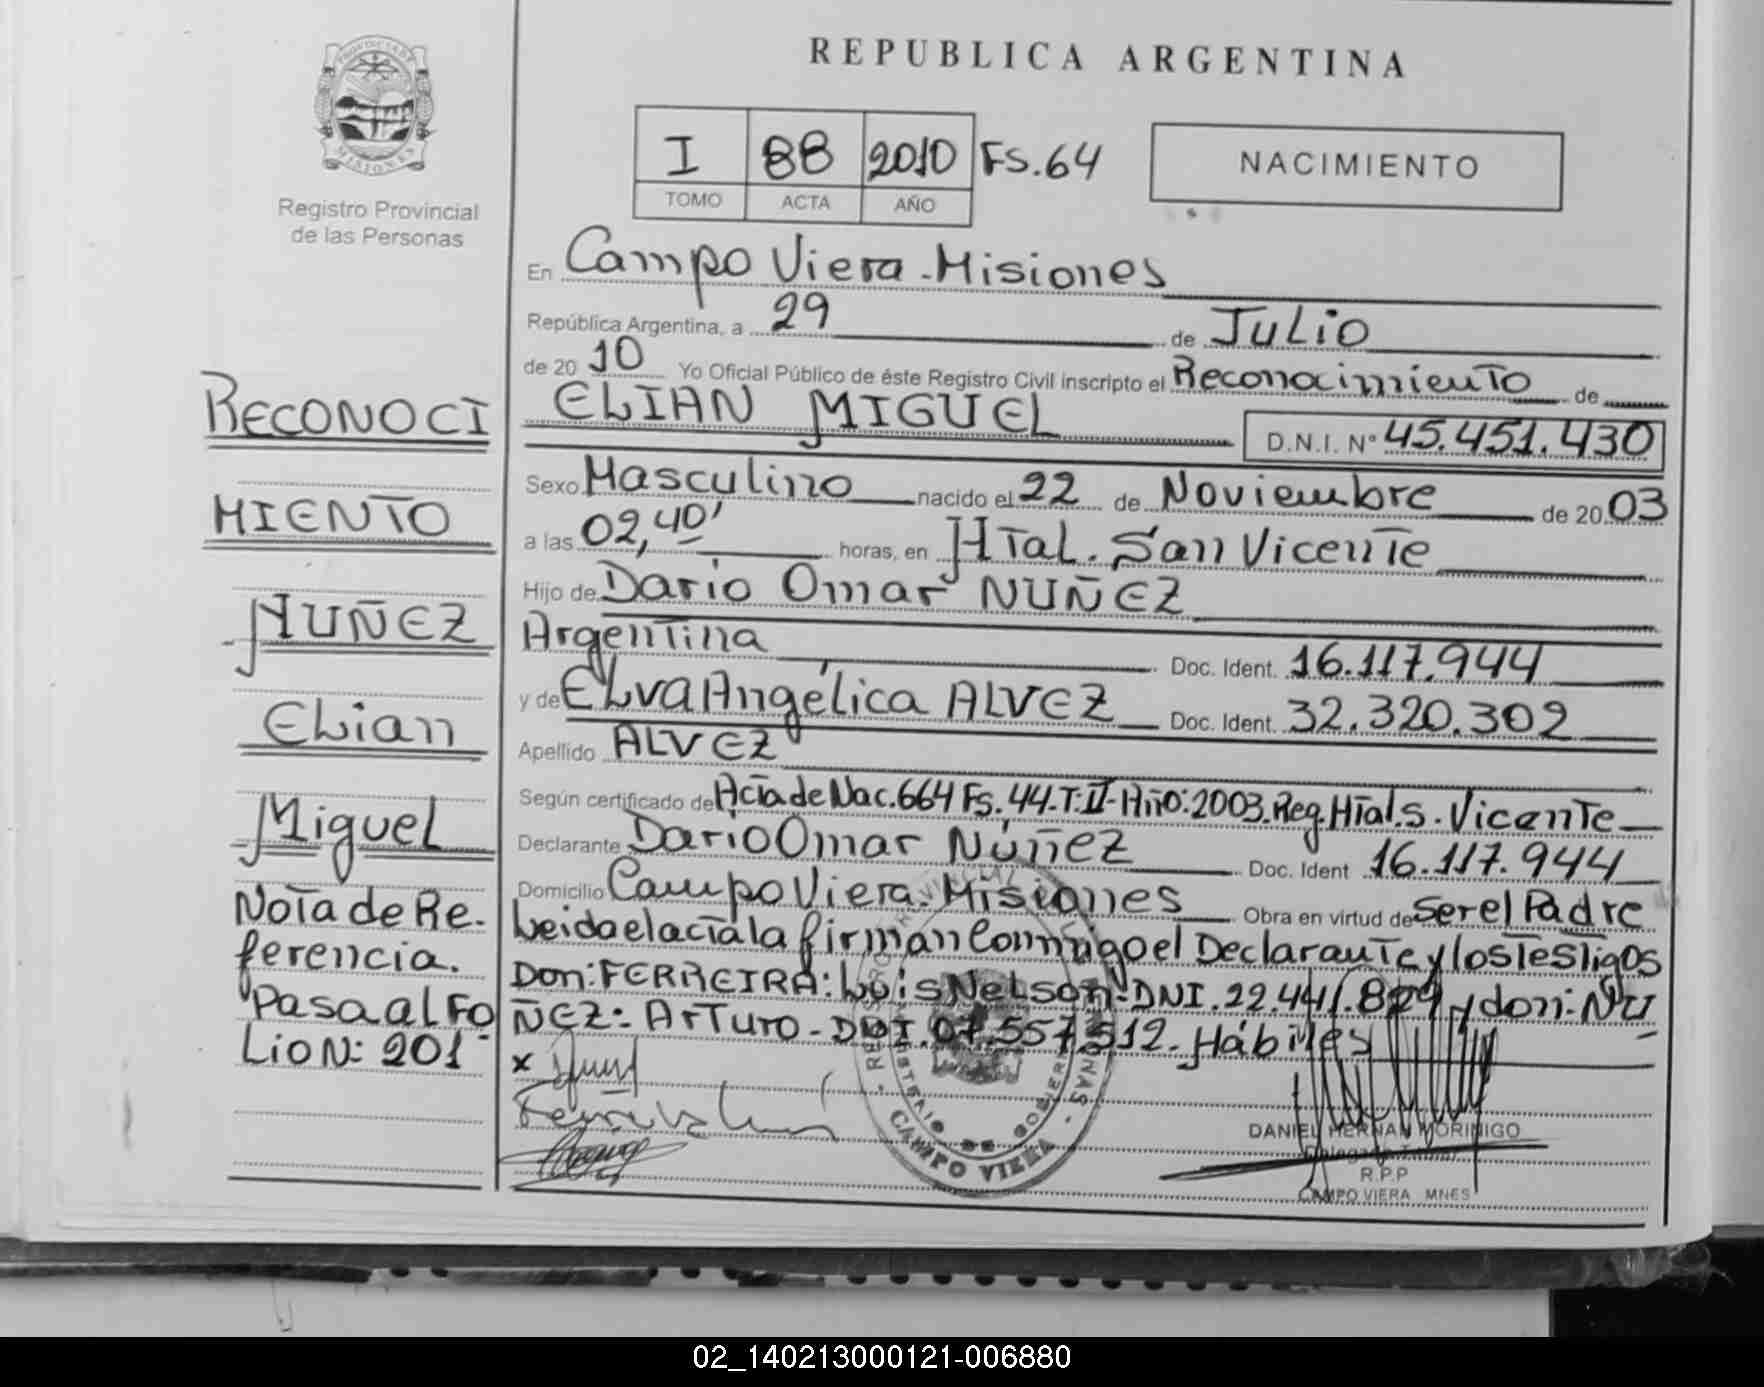 REPUBLICA ARGENTINA
PROVINCIA DE MISIONES
Registro Provincial
de las Personas
I 88 2010 FS.64
TOMO ACTA AÑO
NACIMIENTO
En Campo Viera - Misiones
República Argentina, a 29 de JULiO
de 20 10 Yo Oficial Público de éste Registro Civil inscripto el Reconocimiento de
ELIAN MIGUEL D.N.I. N° 45.451.430
Sexo Masculino nacido el 22 de Noviembre de 20 03
a las 02,40' horas, en HTal. San Vicente
Hijo de Dario Omar NUÑEZ
Argentina Doc. Ident. 16.117.944
y de ELva Angélica ALVEZ Doc. Ident. 32.320.302
Apellido ALVEZ
Según certificado de Acta de Nac. 664 Fs. 44-T: II-Año: 2003. Reg. HTal. S. Vicente
Declarante Dario Omar Núñez Doc. Ident 16.117.944
Domicilio Campo Viera. Misiones Obra en virtud de Ser el Padre
Leida el acta la firman Conmigo el Declarante y los Testigos
Don: FERREIRA: Luis Nelson - DNI. 22.441.829 y don: NU
ÑEZ: ArTuro - DNI. 07.557.512. Hábiles
x
DANIEL HERNAN MORINIGO
Delegado Titular
R.P.P
CAMPO VIERA MNES
RECONOCI
MIENTO
NUÑEZ
ELian
MigueL
Nota de Re-
ferencia.
Pasa al Fo
Lio N: 201-
CAMPO VIERA
02_140213000121-006880